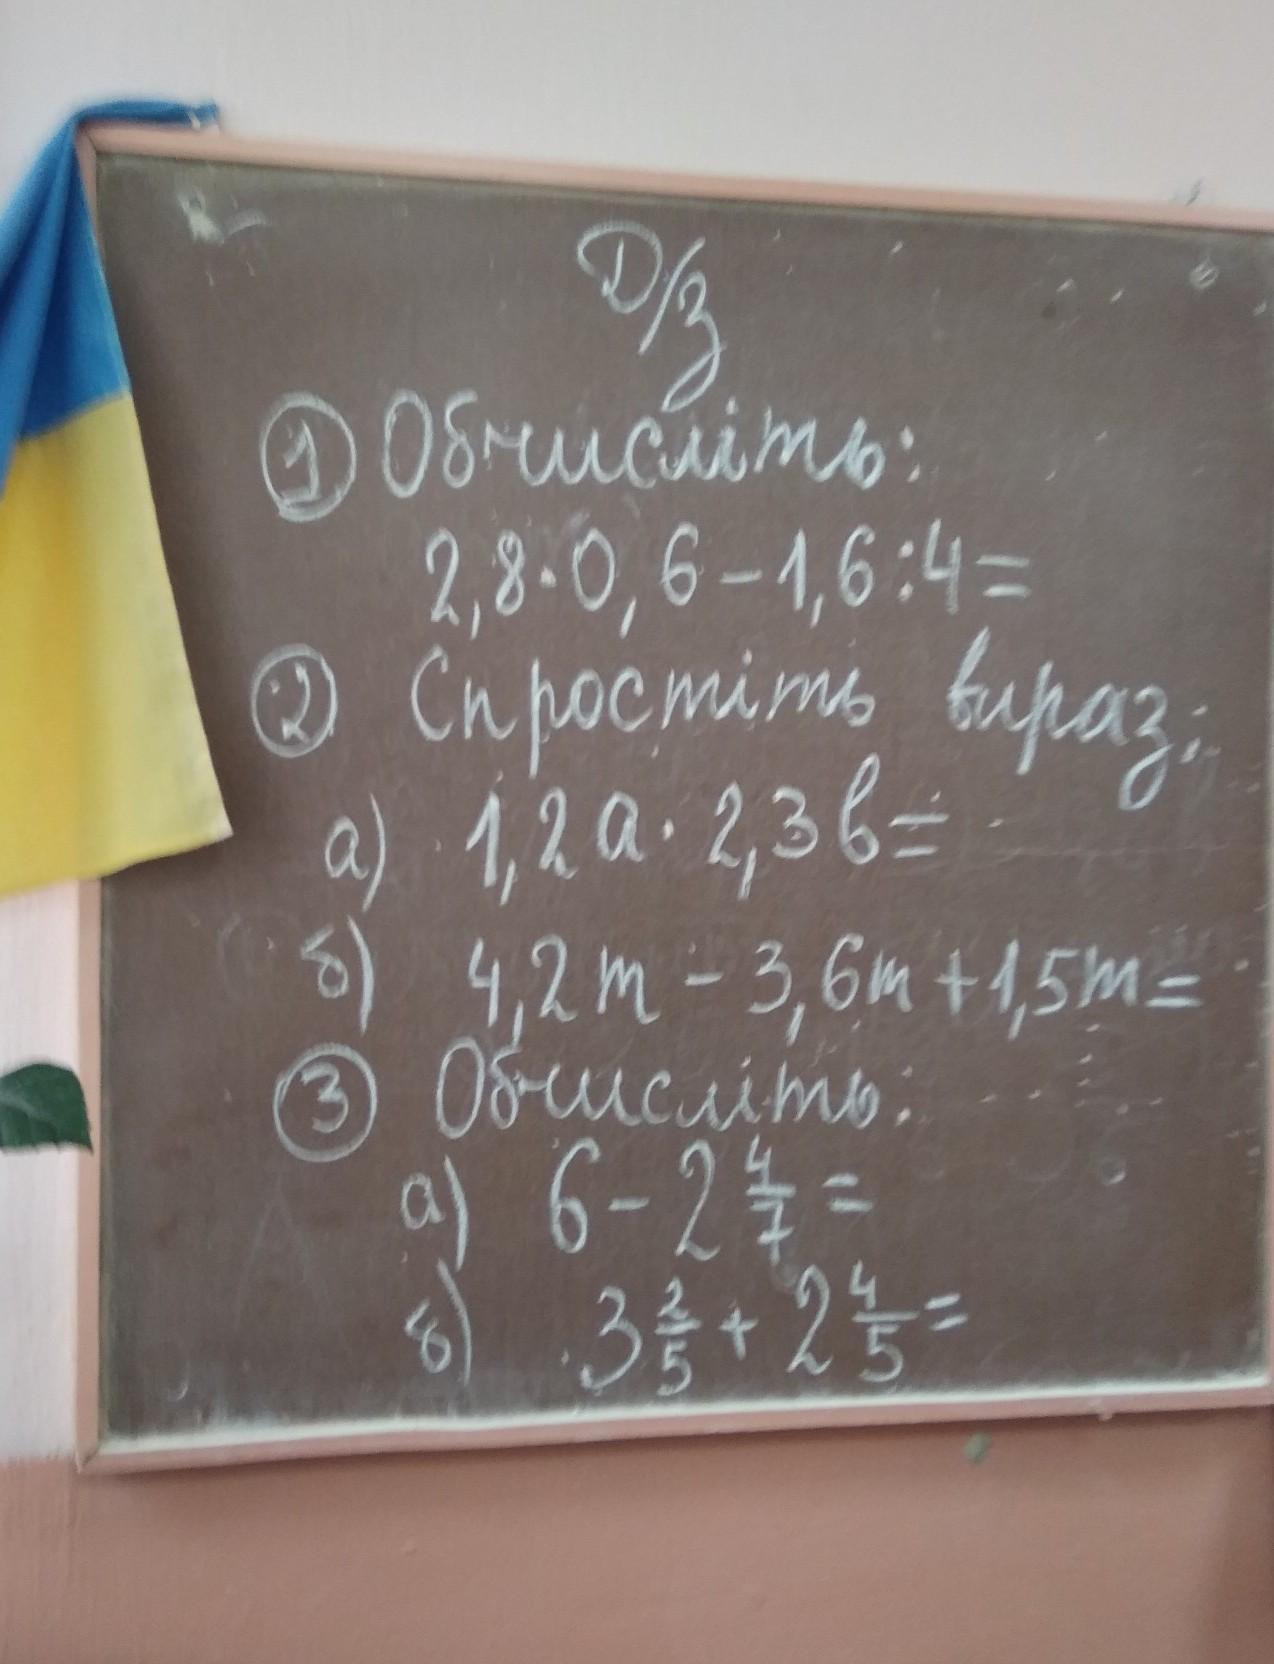 Д/з
① Обчисліть:
2,8·0,6-1,6:4=
② Спростіть вираз:
а) 1,2a·2,3b=
б) 4,2m-3,6m+1,5m=
③ Обчисліть:
а) 6-2 4/7=
б) 3 2/5+2 4/5=